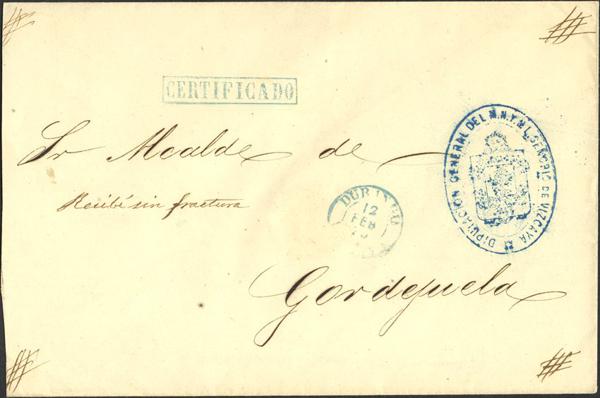 CERTIFICADO
Sr Alcalde de
Recibí sin fractura
DURANGO
12
FEB
DIPUTACION GENERAL DEL M.N.Y M.L. SEÑORIO DE VIZCAYA
Gordejuela